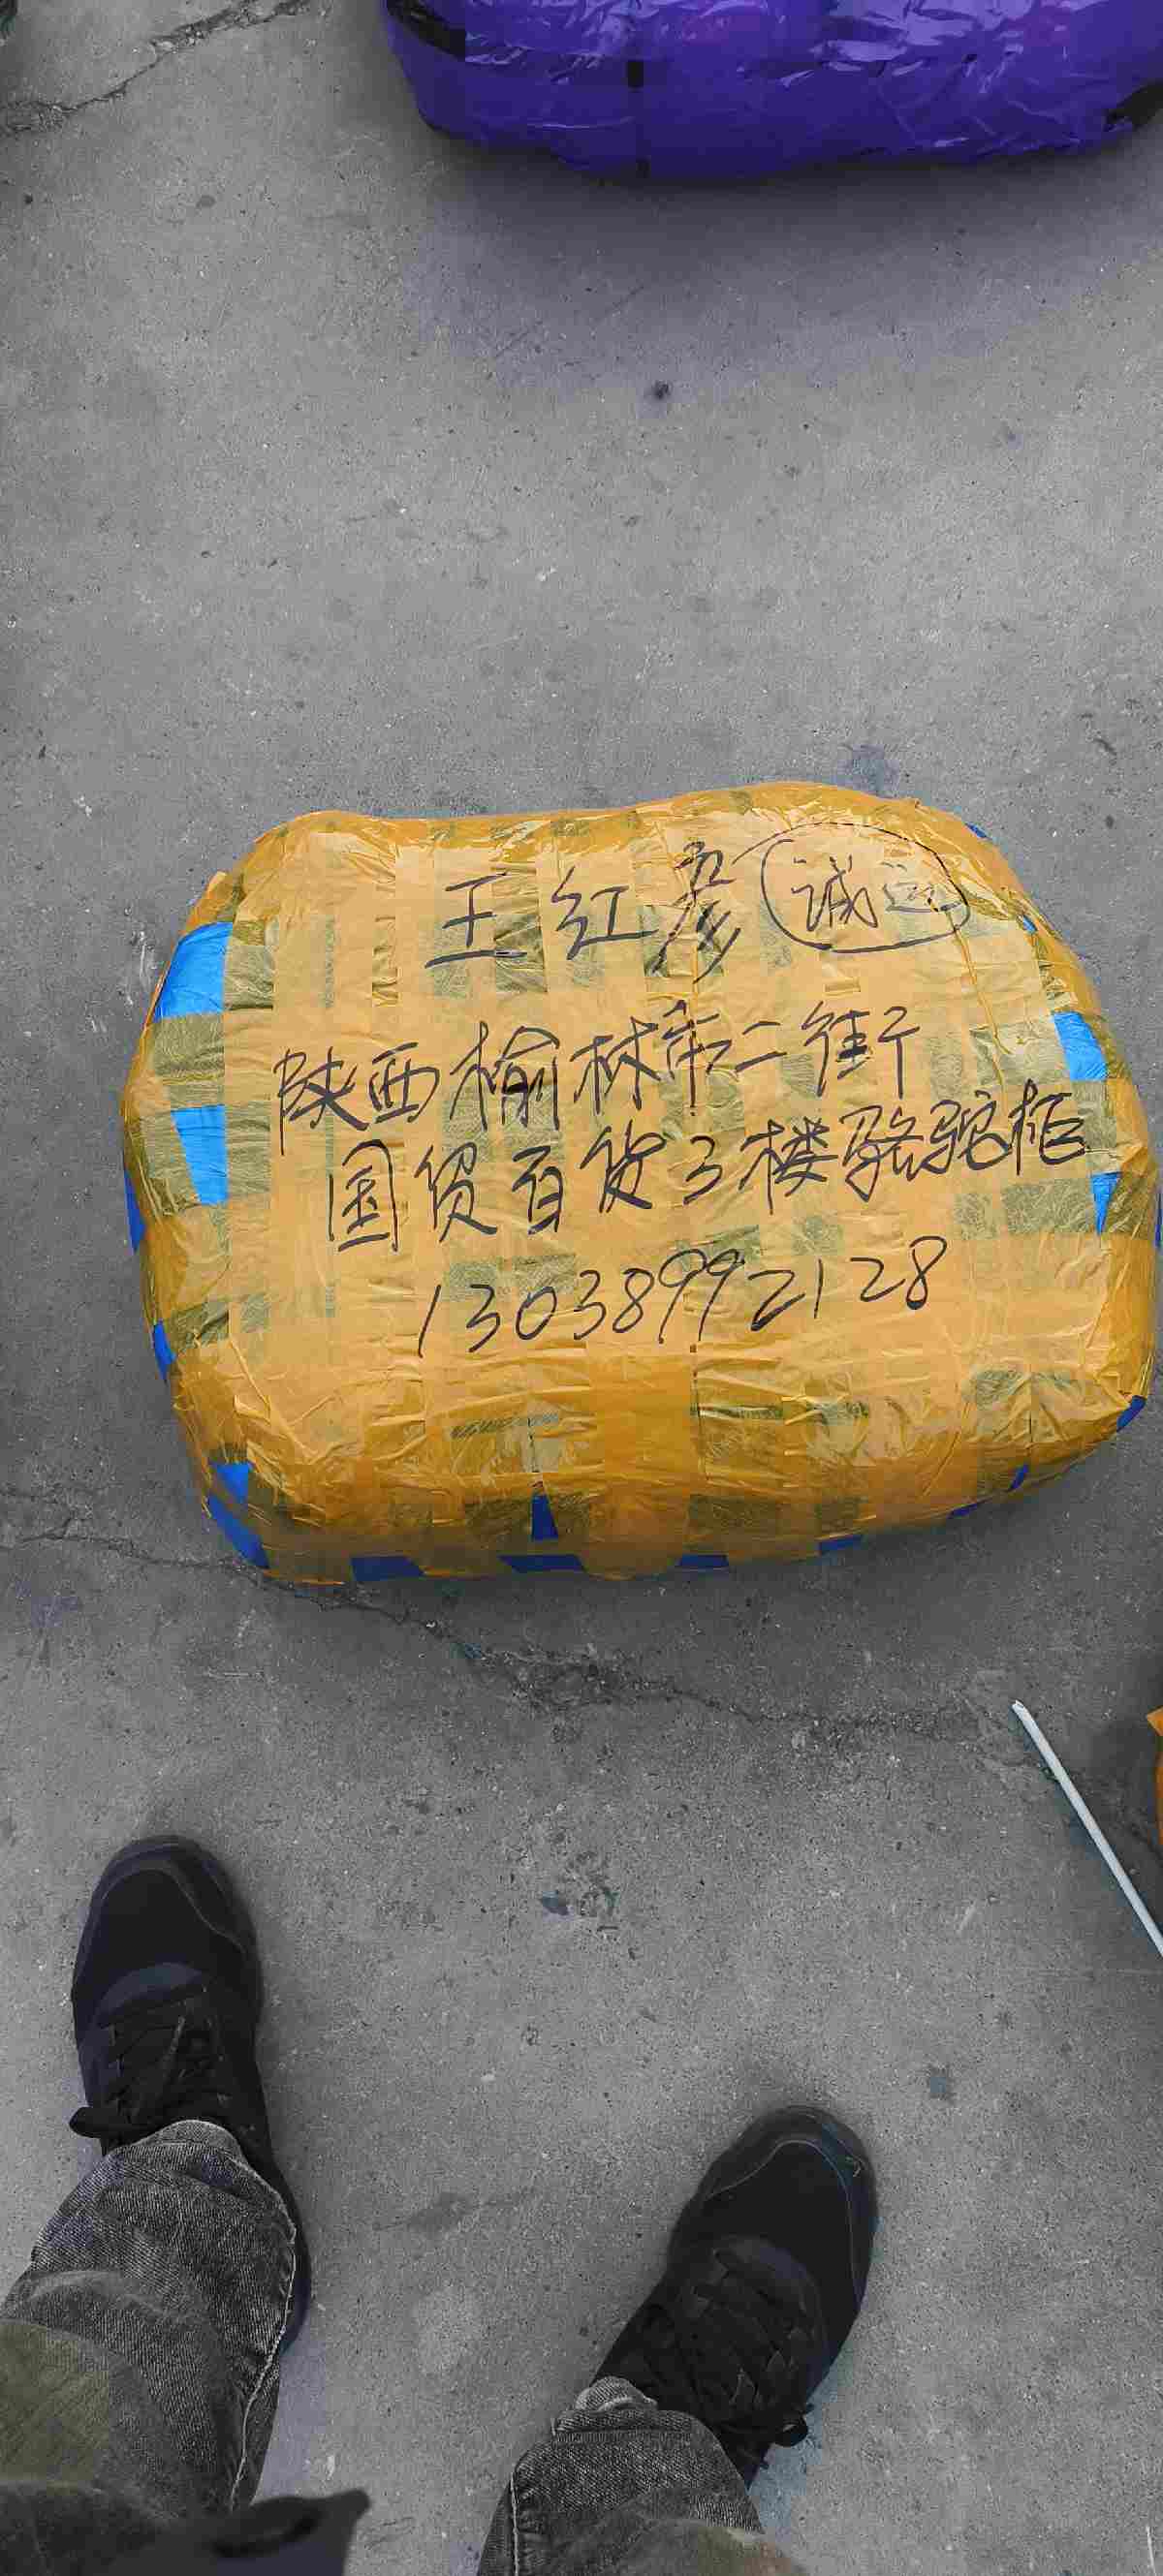 王红彦 诚运
陕西榆林市二街
国贸百货3楼骆驼柜
13038992128